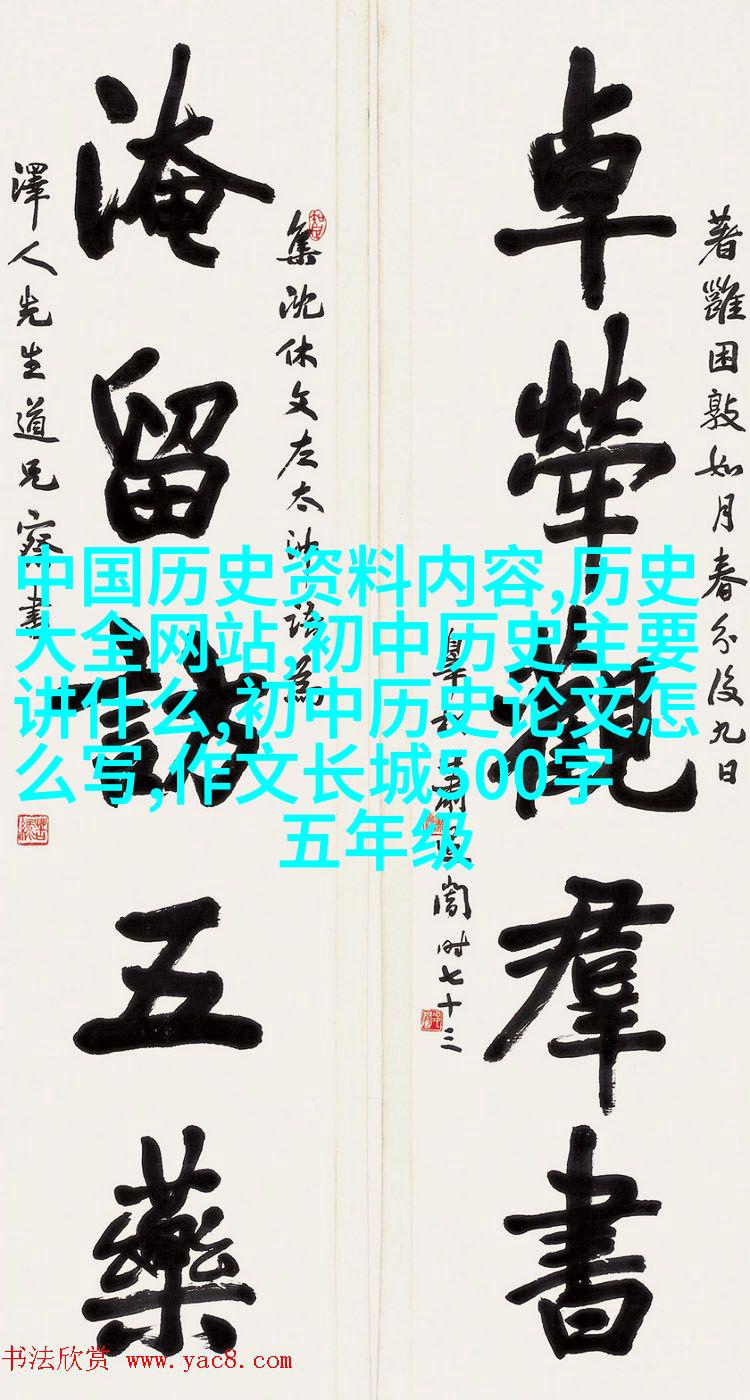 著雝困敦如月春分後九日
卓犖觀羣書
蕭退闇时七十三
集沈休文左太沖語為
淹留訪五藥
澤人先生道兄察書
中国历史资料内容,历史
大全网站,初中历史主要
讲什么,初中历史论文怎
么写,作文长城500字
五年级
书法欣赏 www.yac8.com